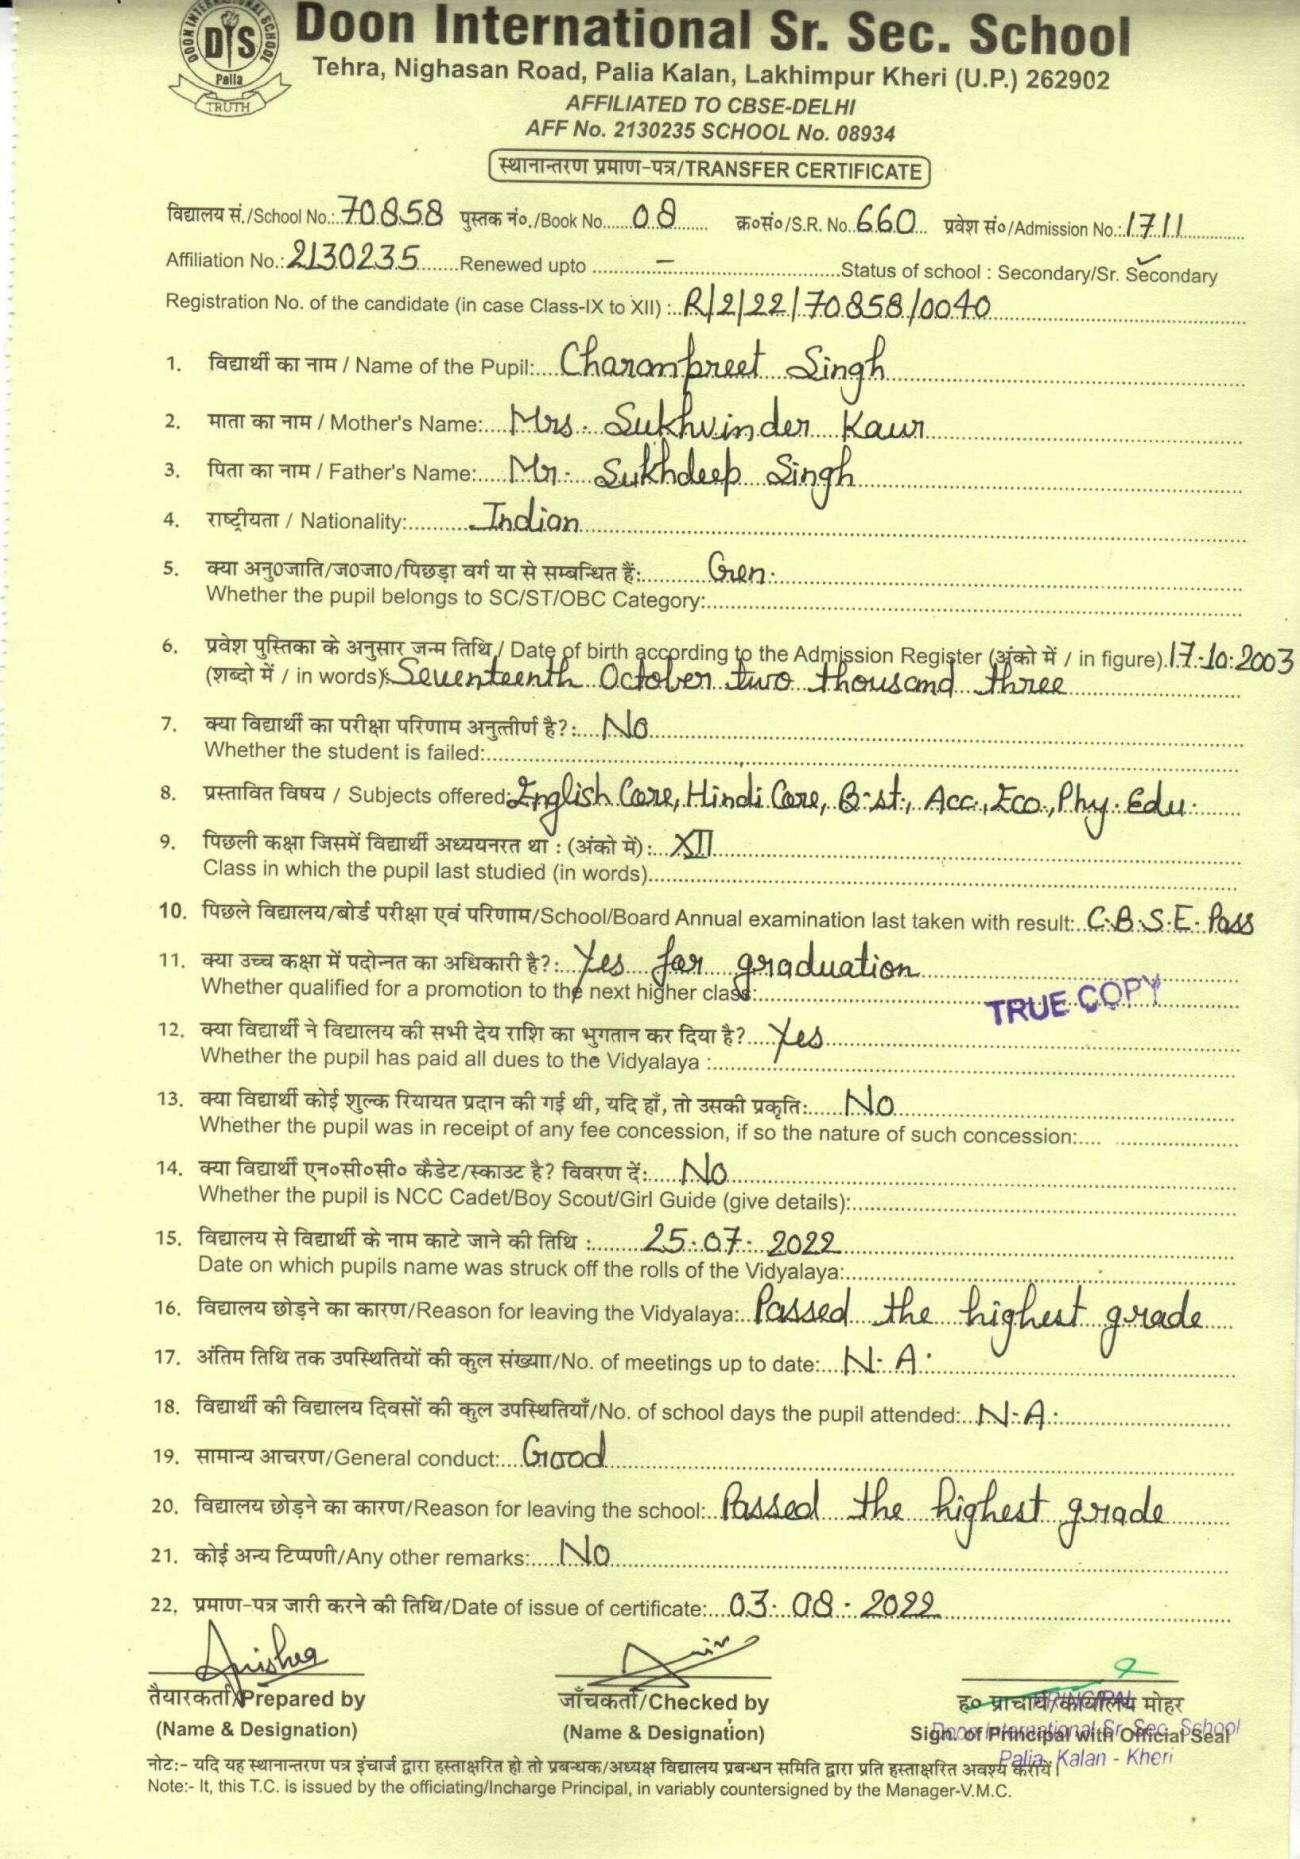 DOON INTERNATIONAL SCHOOL
DIS
Palia
TRUTH
Doon International Sr. Sec. School
Tehra, Nighasan Road, Palia Kalan, Lakhimpur Kheri (U.P.) 262902
AFFILIATED TO CBSE-DELHI
AFF No. 2130235 SCHOOL No. 08934
स्थानान्तरण प्रमाण-पत्र/TRANSFER CERTIFICATE
विद्यालय सं./School No.: 70858 पुस्तक नं०./Book No. 08 क्र०सं०/S.R. No. 660 प्रवेश सं०/Admission No.: 1711
Affiliation No.: 2130235 Renewed upto – Status of school : Secondary/Sr. Secondary
Registration No. of the candidate (in case Class-IX to XII) : R/2/22/70858/0040
1. विद्यार्थी का नाम / Name of the Pupil: Charanpreet Singh
2. माता का नाम / Mother's Name: Mrs. Sukhvinder Kaur
3. पिता का नाम / Father's Name: Mr. Sukhdeep Singh
4. राष्ट्रीयता / Nationality: Indian
5. क्या अनु0जाति/ज0जा0/पिछड़ा वर्ग या से सम्बन्धित हैं: Gen.
Whether the pupil belongs to SC/ST/OBC Category:
6. प्रवेश पुस्तिका के अनुसार जन्म तिथि / Date of birth according to the Admission Register (अंको में / in figure). 17.10.2003
(शब्दो में / in words): Seventeenth October two thousand three
7. क्या विद्यार्थी का परीक्षा परिणाम अनुत्तीर्ण है?: No
Whether the student is failed:
8. प्रस्तावित विषय / Subjects offered: English Core, Hindi Core, B.st., Acc., Eco., Phy. Edu.
9. पिछली कक्षा जिसमें विद्यार्थी अध्ययनरत था : (अंको में): XII
Class in which the pupil last studied (in words)
10. पिछले विद्यालय/बोर्ड परीक्षा एवं परिणाम/School/Board Annual examination last taken with result: C.B.S.E. Pass
11. क्या उच्च कक्षा में पदोन्नत का अधिकारी है?: Yes for graduation
Whether qualified for a promotion to the next higher class:
TRUE COPY
12. क्या विद्यार्थी ने विद्यालय की सभी देय राशि का भुगतान कर दिया है? Yes
Whether the pupil has paid all dues to the Vidyalaya :
13. क्या विद्यार्थी कोई शुल्क रियायत प्रदान की गई थी, यदि हाँ, तो उसकी प्रकृति: No
Whether the pupil was in receipt of any fee concession, if so the nature of such concession:
14. क्या विद्यार्थी एन०सी०सी० कैडेट/स्काउट है? विवरण दें: No
Whether the pupil is NCC Cadet/Boy Scout/Girl Guide (give details):
15. विद्यालय से विद्यार्थी के नाम काटे जाने की तिथि : 25.07.2022
Date on which pupils name was struck off the rolls of the Vidyalaya:
16. विद्यालय छोड़ने का कारण/Reason for leaving the Vidyalaya: Passed the highest grade
17. अंतिम तिथि तक उपस्थितियों की कुल संख्याा/No. of meetings up to date: N.A.
18. विद्यार्थी की विद्यालय दिवसों की कुल उपस्थितियाँ/No. of school days the pupil attended: N.A.
19. सामान्य आचरण/General conduct: Good
20. विद्यालय छोड़ने का कारण/Reason for leaving the school: Passed the highest grade
21. कोई अन्य टिप्पणी/Any other remarks: No
22. प्रमाण-पत्र जारी करने की तिथि/Date of issue of certificate: 03.08.2022
तैयारकर्ता/Prepared by जाँचकर्ता/Checked by ह० प्राचार्य/कार्यालय मोहर
(Name & Designation) (Name & Designation) Sign. of Principal with Official Seal
PRINCIPAL
Doon International Sr. Sec. School
Palia Kalan - Kheri
नोटः- यदि यह स्थानान्तरण पत्र इंचार्ज द्वारा हस्ताक्षरित हो तो प्रबन्धक/अध्यक्ष विद्यालय प्रबन्धन समिति द्वारा प्रति हस्ताक्षरित अवश्य करायें।
Note:- It, this T.C. is issued by the officiating/Incharge Principal, in variably countersigned by the Manager-V.M.C.